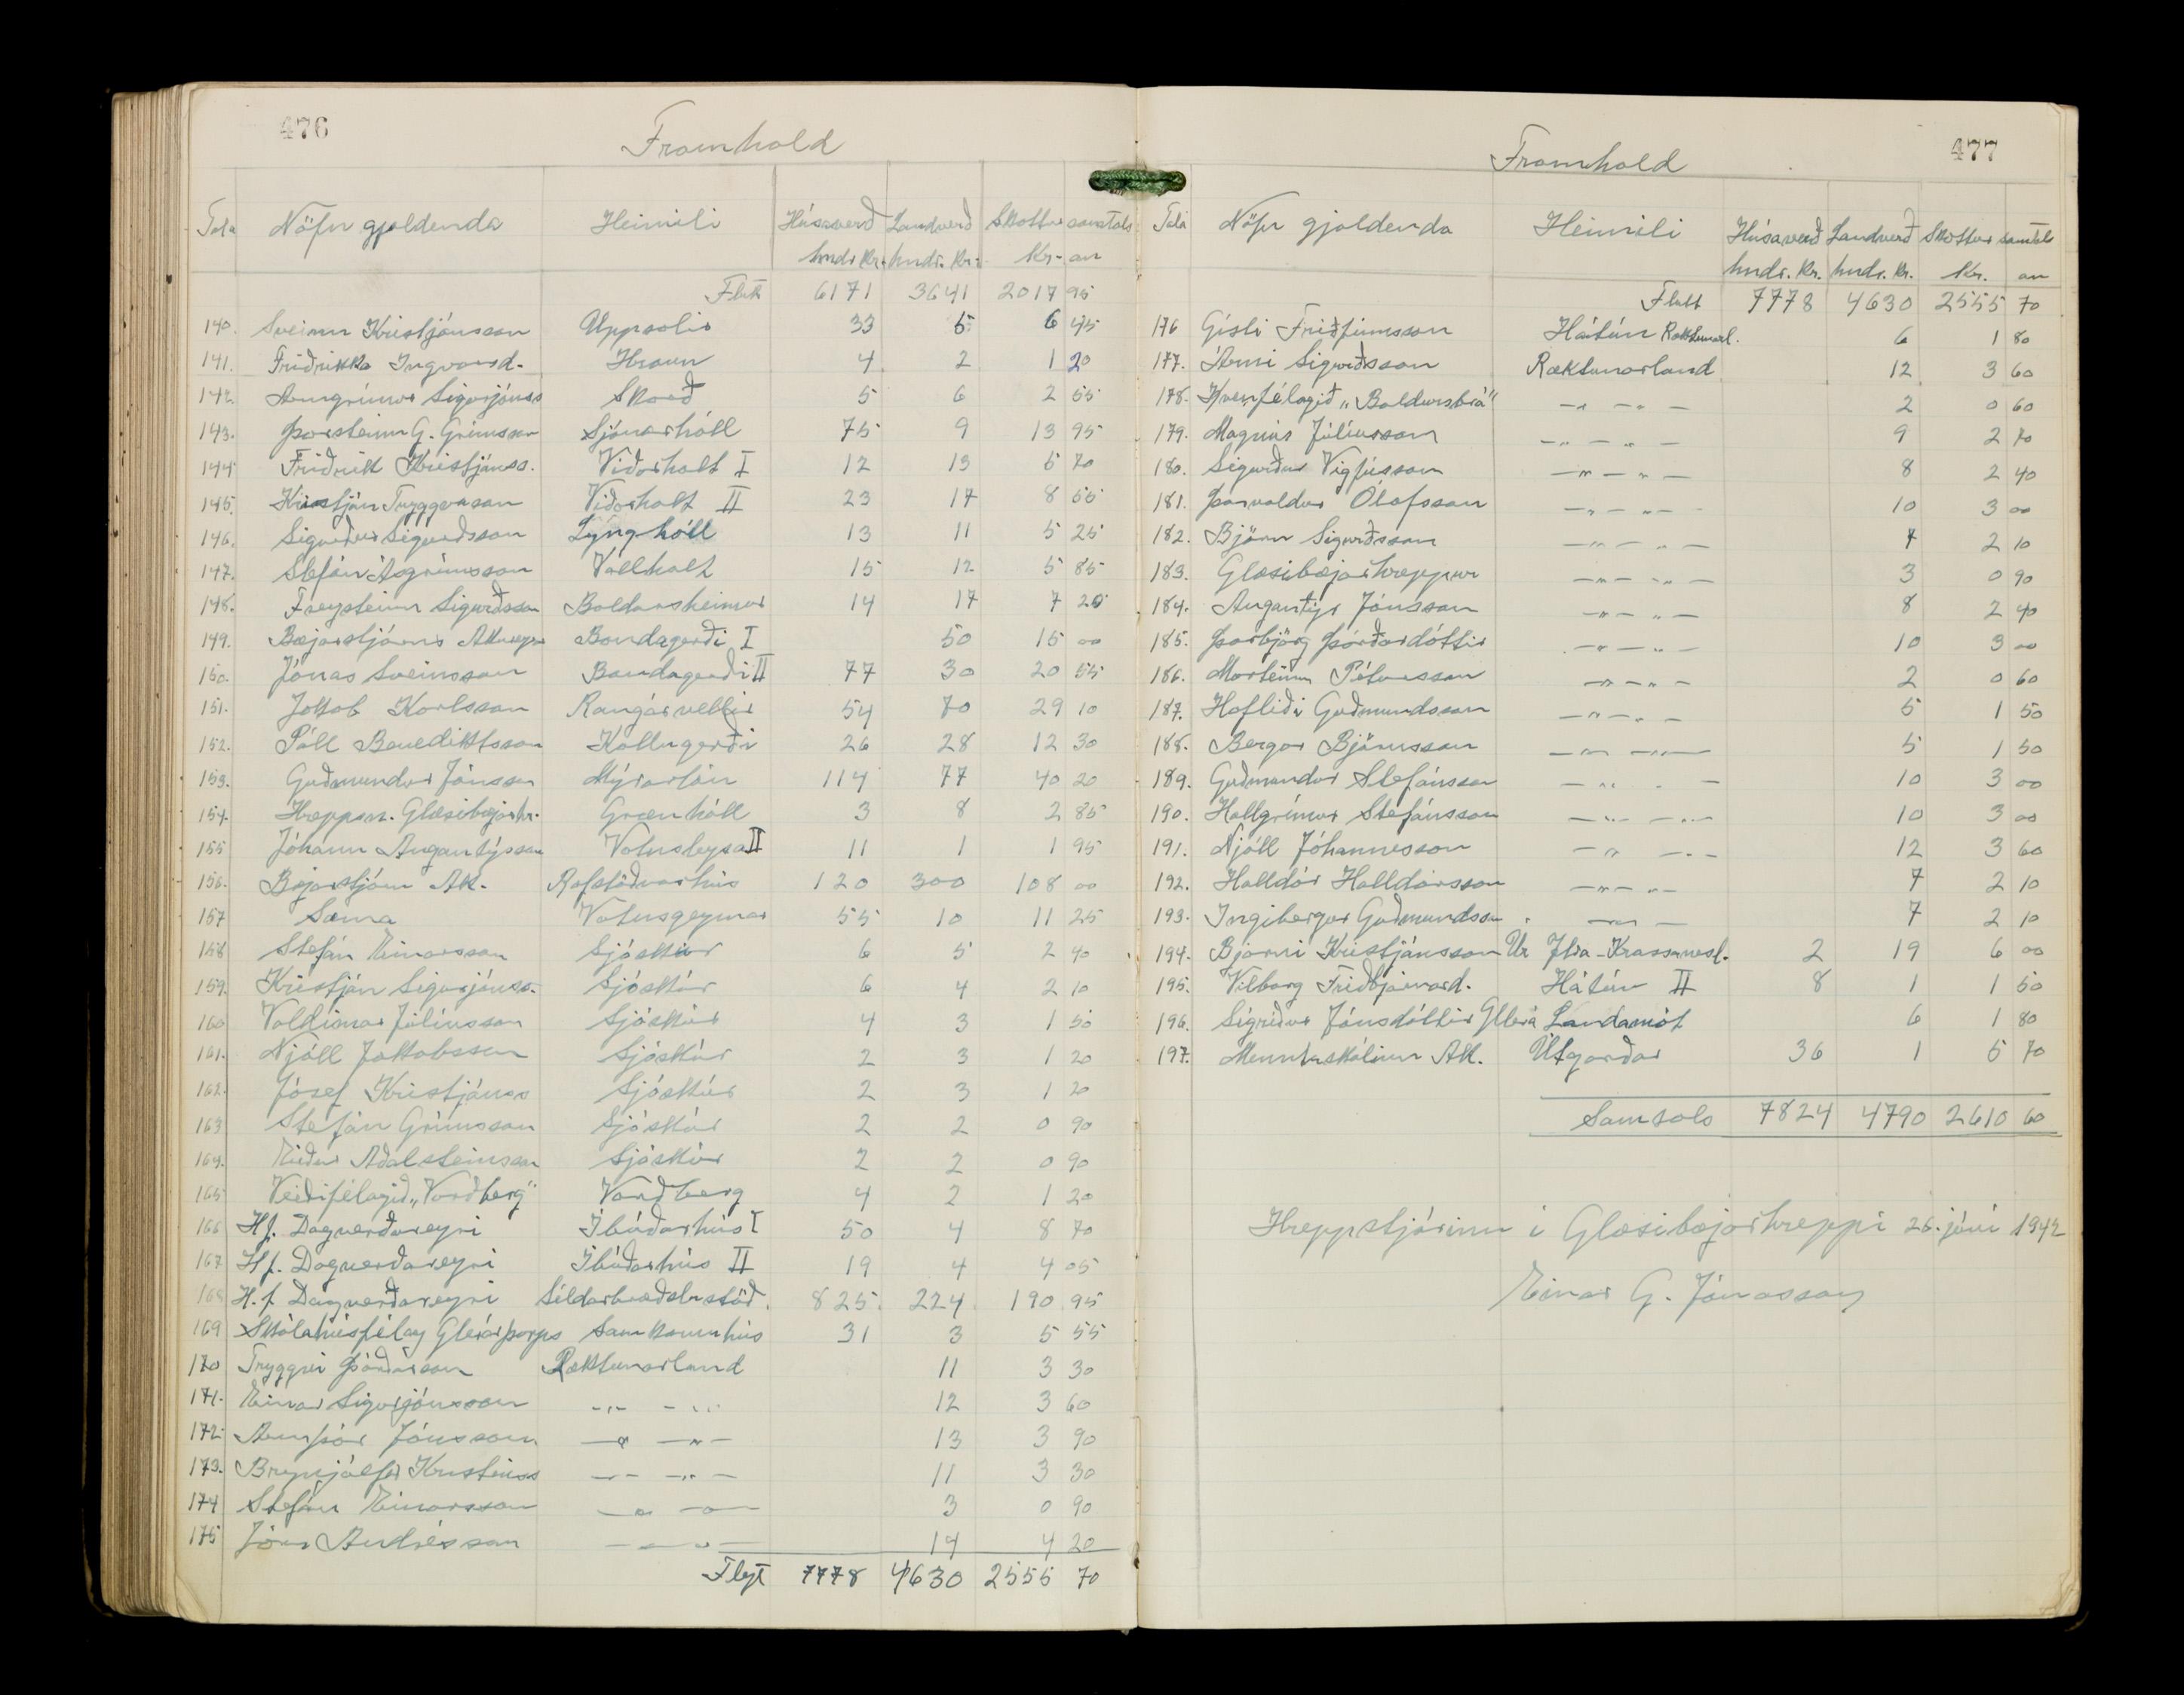 476
Framhald
Tala Nöfn gjaldenda Heimili Húsaverð Landverð Skattur samtals
hndr. kr. hndr. kr. Kr. au
Flutt 6171 3641 2017 95
140. Sveinn Kristjánsson Uppsalir 33 5 6 45
141. Friðrikka Ingvarsd. Hraun 4 2 1 20
142. Arngrímur Sigurjónss Skarð 5 6 2 55
143. Þorsteinn G. Grímsson Sjónarhóll 75 9 13 95
144 Friðrik Kristjánss. Viðarholt I 12 13 5 70
145. Kristján Tryggvason Viðarholt II 23 17 8 55
146. Sigurður Sigurðsson Lynghóll 13 11 5 25
147. Stefán Ásgrímsson Vallholt 15 12 5 85
148. Freysteinn Sigurðsson Baldursheimur 14 17 7 20
149. Bæjarstjórn Akureyrar Bandagerði I 50 15 00
150. Jónas Sveinsson Bandagerði II 77 30 20 55
151. Jakob Karlsson Rangárvellir 54 70 29 10
152. Páll Benediktsson Kollugerði 26 28 12 30
153. Guðmundur Jónsson Mýrarlón 114 77 40 20
154. Hreppsn. Glæsibæjarhr. Grænhóll 3 8 2 85
155 Jóhann Angantýsson Vatnsleysa II 11 1 1 95
156. Bæjarstjórn Ak. Rafstöðvarhús 120 300 108 00
157 Sama Vatnsgeymar 55 10 11 25
158 Stefán Einarsson Sjóskúr 6 5 2 40
159. Kristján Sigurjónss. Sjóskúr 6 4 2 10
160 Valdimar Júlíusson Sjóskúr 4 3 1 50
161. Njáll Jakobsson Sjóskúr 2 3 1 20
162. Jósef Kristjánss Sjóskúr 2 3 1 20
163 Stefán Grímsson Sjóskúr 2 2 0 90
164. Eiður Aðalsteinsson Sjóskúr 2 2 0 90
165 Veiðifélagið „Varðberg“ Varðberg 4 2 1 20
166 H.f. Dagverðareyri Íbúðarhús I 50 4 8 70
167 H.f. Dagverðareyri Íbúðarhús II 19 4 4 05
168 H.f. Dagverðareyri Síldarbræðslustöð. 825 224 190 95
169 Skólahúsfélag Glerárþorps Samkomuhús 31 3 5 55
170 Tryggvi Þórðarson Ræktunarland 11 3 30
171. Einar Sigurjónsson -„- -„- 12 3 60
172. Arnþór Jónsson -„- -„- 13 3 90
173. Brynjólfur Kristinss -„- -„- 11 3 30
174 Stefán Einarsson -„- -„- 3 0 90
175 Jón Andrésson -„- -„- 14 4 20
Flyt 7778 4630 2555 70
477
Framhald
Tala Nöfn gjaldenda Heimili Húsaverð Landverð Skattur samtals
hndr. kr. hndr. kr. Kr. au
Flutt 7778 4630 2555 70
176 Gísli Friðfinnsson Hátún Ræktunarl. 6 1 80
177. Árni Sigurðsson Ræktunarland 12 3 60
178. Kvenfélagið „Baldursbrá“ -„- -„- 2 0 60
179. Magnús Júlíusson -„- -„- 9 2 70
180. Sigurður Vigfússon -„- -„- 8 2 40
181. Þorvaldur Ólafsson -„- -„- 10 3 00
182. Björn Sigurðsson -„- -„- 7 2 10
183. Glæsibæjarhreppur -„- -„- 3 0 90
184. Angantýr Jónsson -„- -„- 8 2 40
185. Þorbjörg Þórðardóttir -„- -„- 10 3 00
186. Marteinn Pétursson -„- -„- 2 0 60
187. Hafliði Guðmundsson -„- -„- 5 1 50
188. Bergur Björnsson -„- -„- 5 1 50
189. Guðmundur Stefánsson -„- - 10 3 00
190. Hallgrímur Stefánsson -„- -„- 10 3 00
191. Njáll Jóhannesson -„- -„- 12 3 60
192. Halldór Halldórsson -„- -„- 7 2 10
193. Ingibergur Guðmundsson -„- 7 2 10
194. Bjarni Kristjánsson Úr Ytra-Krossanesl. 2 19 6 00
195. Vilborg Friðbjarnard. Hátún II 8 1 1 50
196. Sigríður Jónsdóttir Glerá Landamót 6 1 80
197. Menntaskólinn Ak. Útgarður 36 1 5 70
Samtals 7824 4790 2610 60
Hreppstjórinn í Glæsibæjarhreppi 26. júní 1942
Einar G. Jónasson